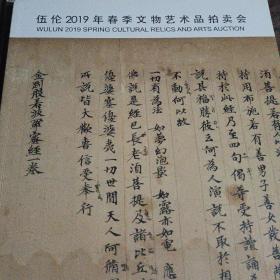 伍伦2019年春季文物艺术品拍卖会
WULUN 2019 SPRING CULTURAL RELICS AND ARTS AUCTION
持用布施若有善男子善女
持於此經乃至四句偈等受持讀誦
說其福勝彼云何為人演說不取於相
不動何以故
一切有為法 如夢幻泡影 如露亦如電 應
佛說是經已長老須菩提及諸比丘
優婆塞優婆夷一切世間天人阿脩
所說皆大歡喜信受奉行
金剛般若波羅蜜經一卷